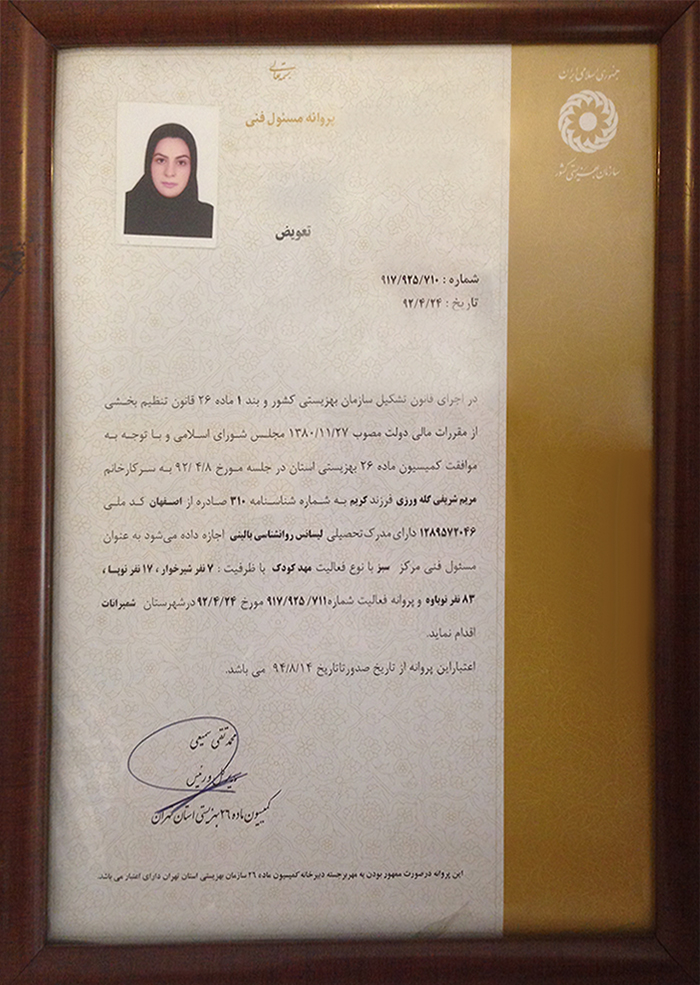 بسمه تعالی
جمهوری اسلامی ایران
سازمان بهزیستی کشور
پروانه مسئول فنی
تعویض
شماره : ۹۱۷/۹۲۵/۷۱۰
تاریخ : ۹۲/۴/۲۴
در اجرای قانون تشکیل سازمان بهزیستی کشور و بند ۱ ماده ۲۶ قانون تنظیم بخشی
از مقررات مالی دولت مصوب ۱۳۸۰/۱۱/۲۷ مجلس شورای اسلامی و با توجه به
موافقت کمیسیون ماده ۲۶ بهزیستی استان در جلسه مورخ ۹۲/۴/۸ به سرکارخانم
مریم شریفی گله ورزی فرزند کریم به شماره شناسنامه ۳۱۰ صادره از اصفهان کد ملی
۱۲۸۹۵۷۲۰۴۶ دارای مدرک تحصیلی لیسانس روانشناسی بالینی اجازه داده می‌شود به عنوان
مسئول فنی مرکز سبز با نوع فعالیت مهد کودک با ظرفیت : ۷ نفر شیرخوار ، ۱۷ نفر نوپا ،
۸۳ نفر نوباوه و پروانه فعالیت شماره ۹۱۷/۹۲۵/۷۱۱ مورخ ۹۲/۴/۲۴ درشهرستان شمیرانات
اقدام نماید.
اعتباراین پروانه از تاریخ صدورتاتاریخ ۹۴/۸/۱۴ می باشد.
محمد تقی سمیعی
مدیر کل و رئیس
کمیسیون ماده ۲۶ بهزیستی استان تهران
این پروانه درصورت ممهور بودن به مهربرجسته دبیرخانه کمیسیون ماده ۲۶ سازمان بهزیستی استان تهران دارای اعتبار می باشد.